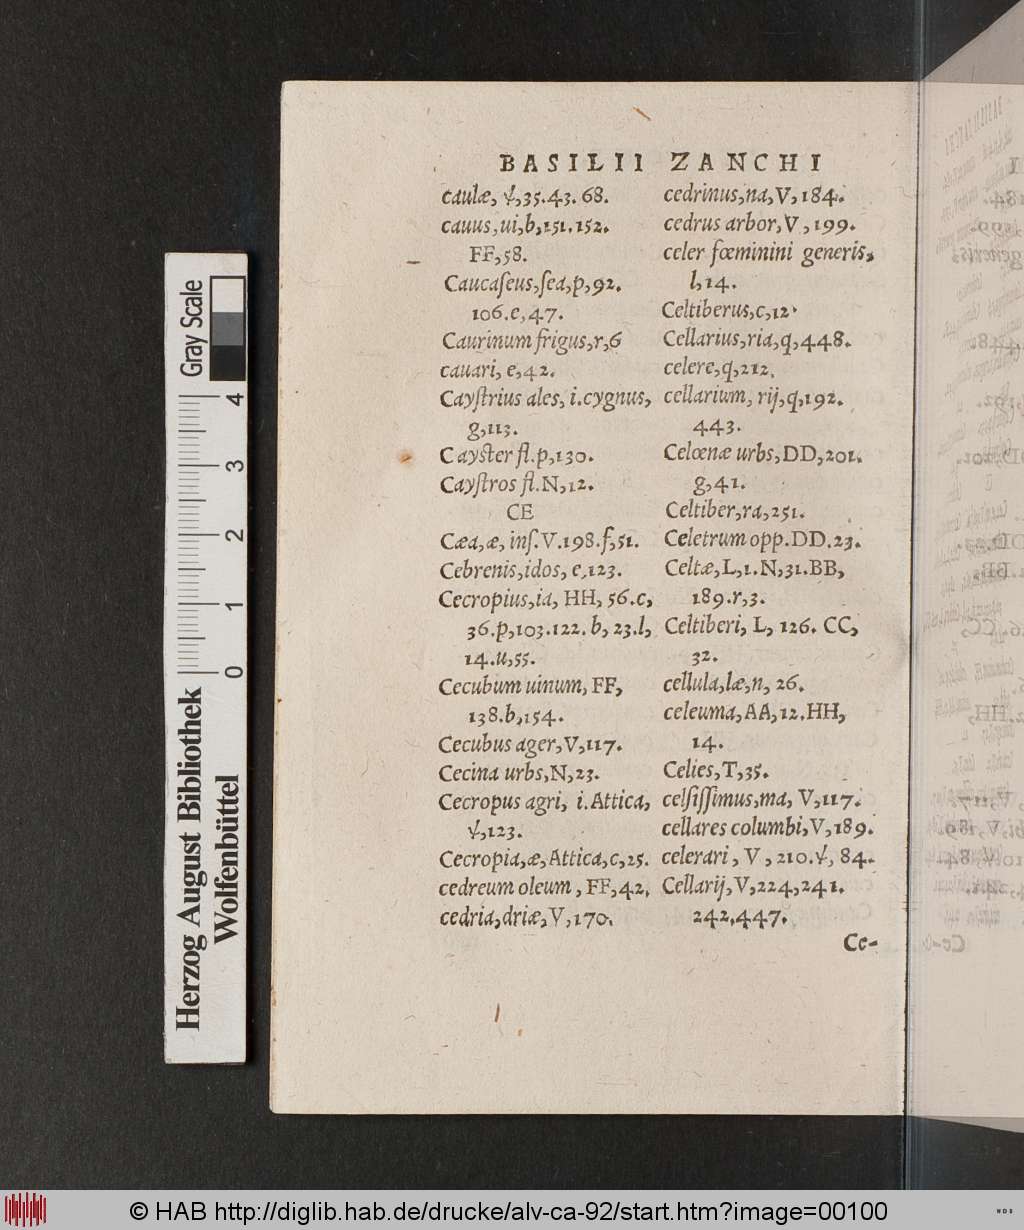 BASILII ZANCHI
caulæ, ψ,35.43.68.
cauus,ui,b,151.152.
FF,58.
Caucaſeus,ſea,p,92.
106.e,47.
Caurinum frigus,r,6
cauari, e,42.
Cayſtrius ales, i.cygnus,
g,113.
Cayſter fl.p,130.
Cayſtros fl.N,12.
CE
Cæa,æ, inſ.V.198.f,51.
Cebrenis,idos, e,123.
Cecropius,ia, HH, 56.c,
36.p,103.122.b, 23.l,
14.u,55.
Cecubum uinum, FF,
138.b,154.
Cecubus ager,V,117.
Cecina urbs,N,23.
Cecropus agri, i.Attica,
ψ,123.
Cecropia,æ,Attica,c,25.
cedreum oleum, FF,42,
cedria,driæ,V,170.
cedrinus,na,V,184.
cedrus arbor,V,199.
celer fœminini generis,
l,14.
Celtiberus,c,12.
Cellarius,ria,q,448.
celere,q,212.
cellarium, rij,q,192.
443.
Celœnæ urbs,DD,201.
g,41.
Celtiber,ra,251.
Celetrum opp.DD.23.
Celtæ,L,1.N,31.BB,
189.r,3.
Celtiberi, L, 126. CC,
32.
cellula,læ,n, 26.
celeuma,AA,12.HH,
14.
Celies,T,35.
celſiſſimus,ma, V,117.
cellares columbi,V,189.
celerari, V, 210.ψ, 84.
Cellarij,V,224,241.
242.447.
Ce-
Gray Scale
4
3
2
1
0
Herzog August Bibliothek
Wolfenbüttel
© HAB http://diglib.hab.de/drucke/alv-ca-92/start.htm?image=00100